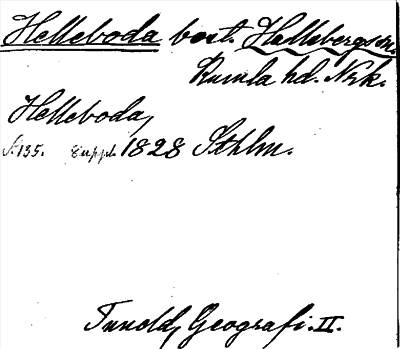 Helleboda bost. Hallsbergs sn.
Kumla hd. Nrk.
Helleboda,
S. 135. 8 uppl. 1828 Sthlm.
Tuneld, Geografi. II.